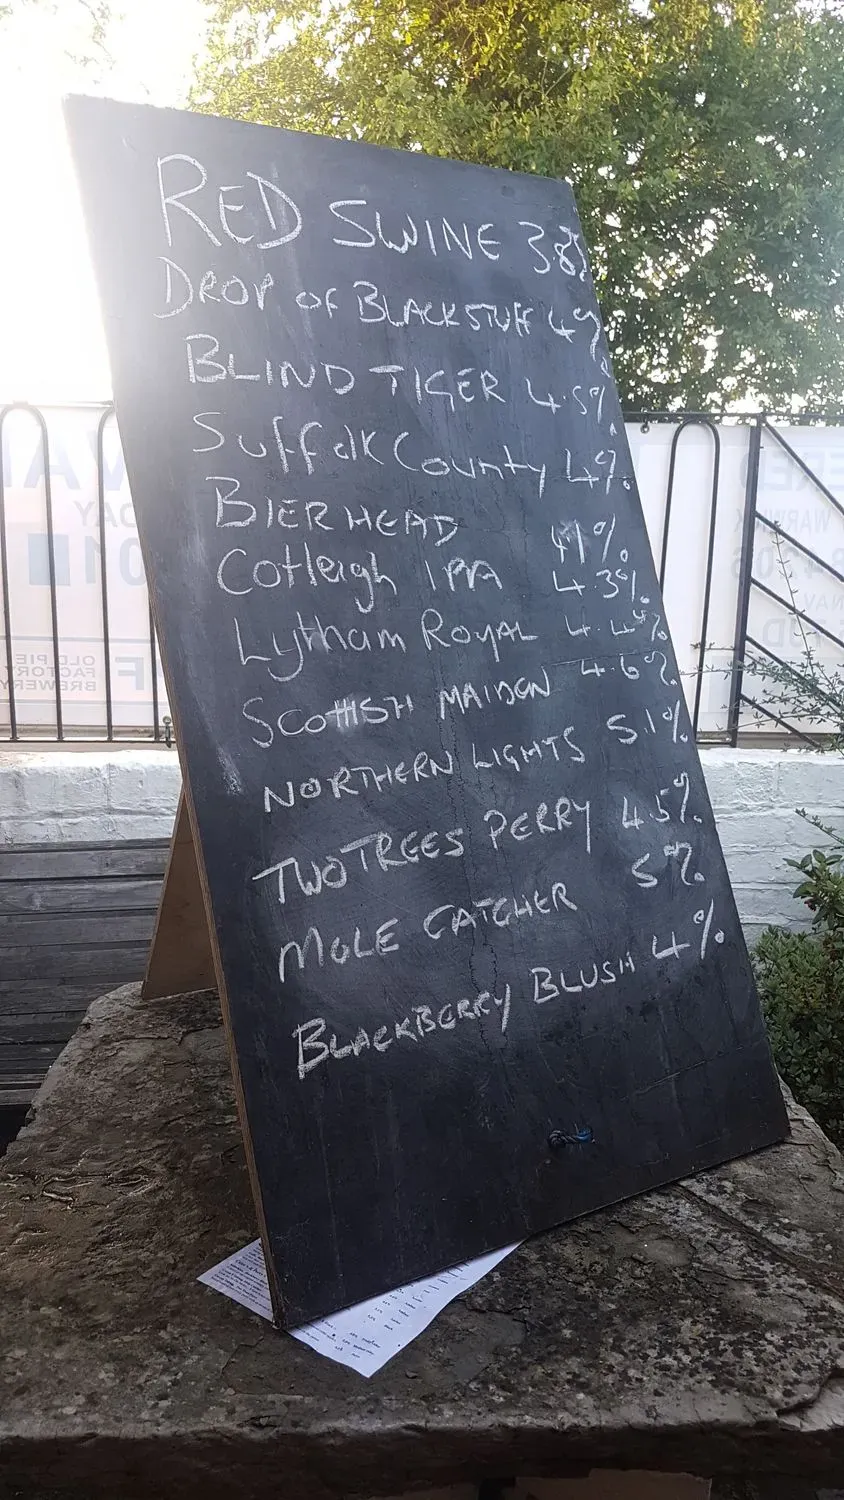 RED SWINE 3.8%
DROP OF BLACKSTUFF 4%
BLIND TIGER 4.5%
Suffolk County 4%
BIERHEAD 4.1%
Cotleigh IPA 4.3%
Lytham ROYAL 4.4%
SCOTTISH MAIDEN 4.6%
NORTHERN LIGHTS 5.1%
TWO TREES PERRY 4.5%
MOLE CATCHER 5%
BLACKBERRY BLUSH 4%
OLD PIE
FACTORY
BREWERY